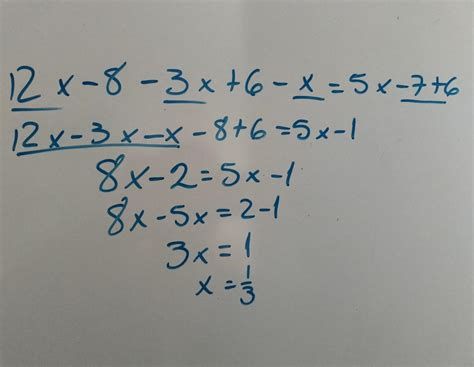 12x-8-3x+6-x=5x-7+6
12x-3x-x-8+6=5x-1
8x-2=5x-1
8x-5x=2-1
3x=1
x=1/3